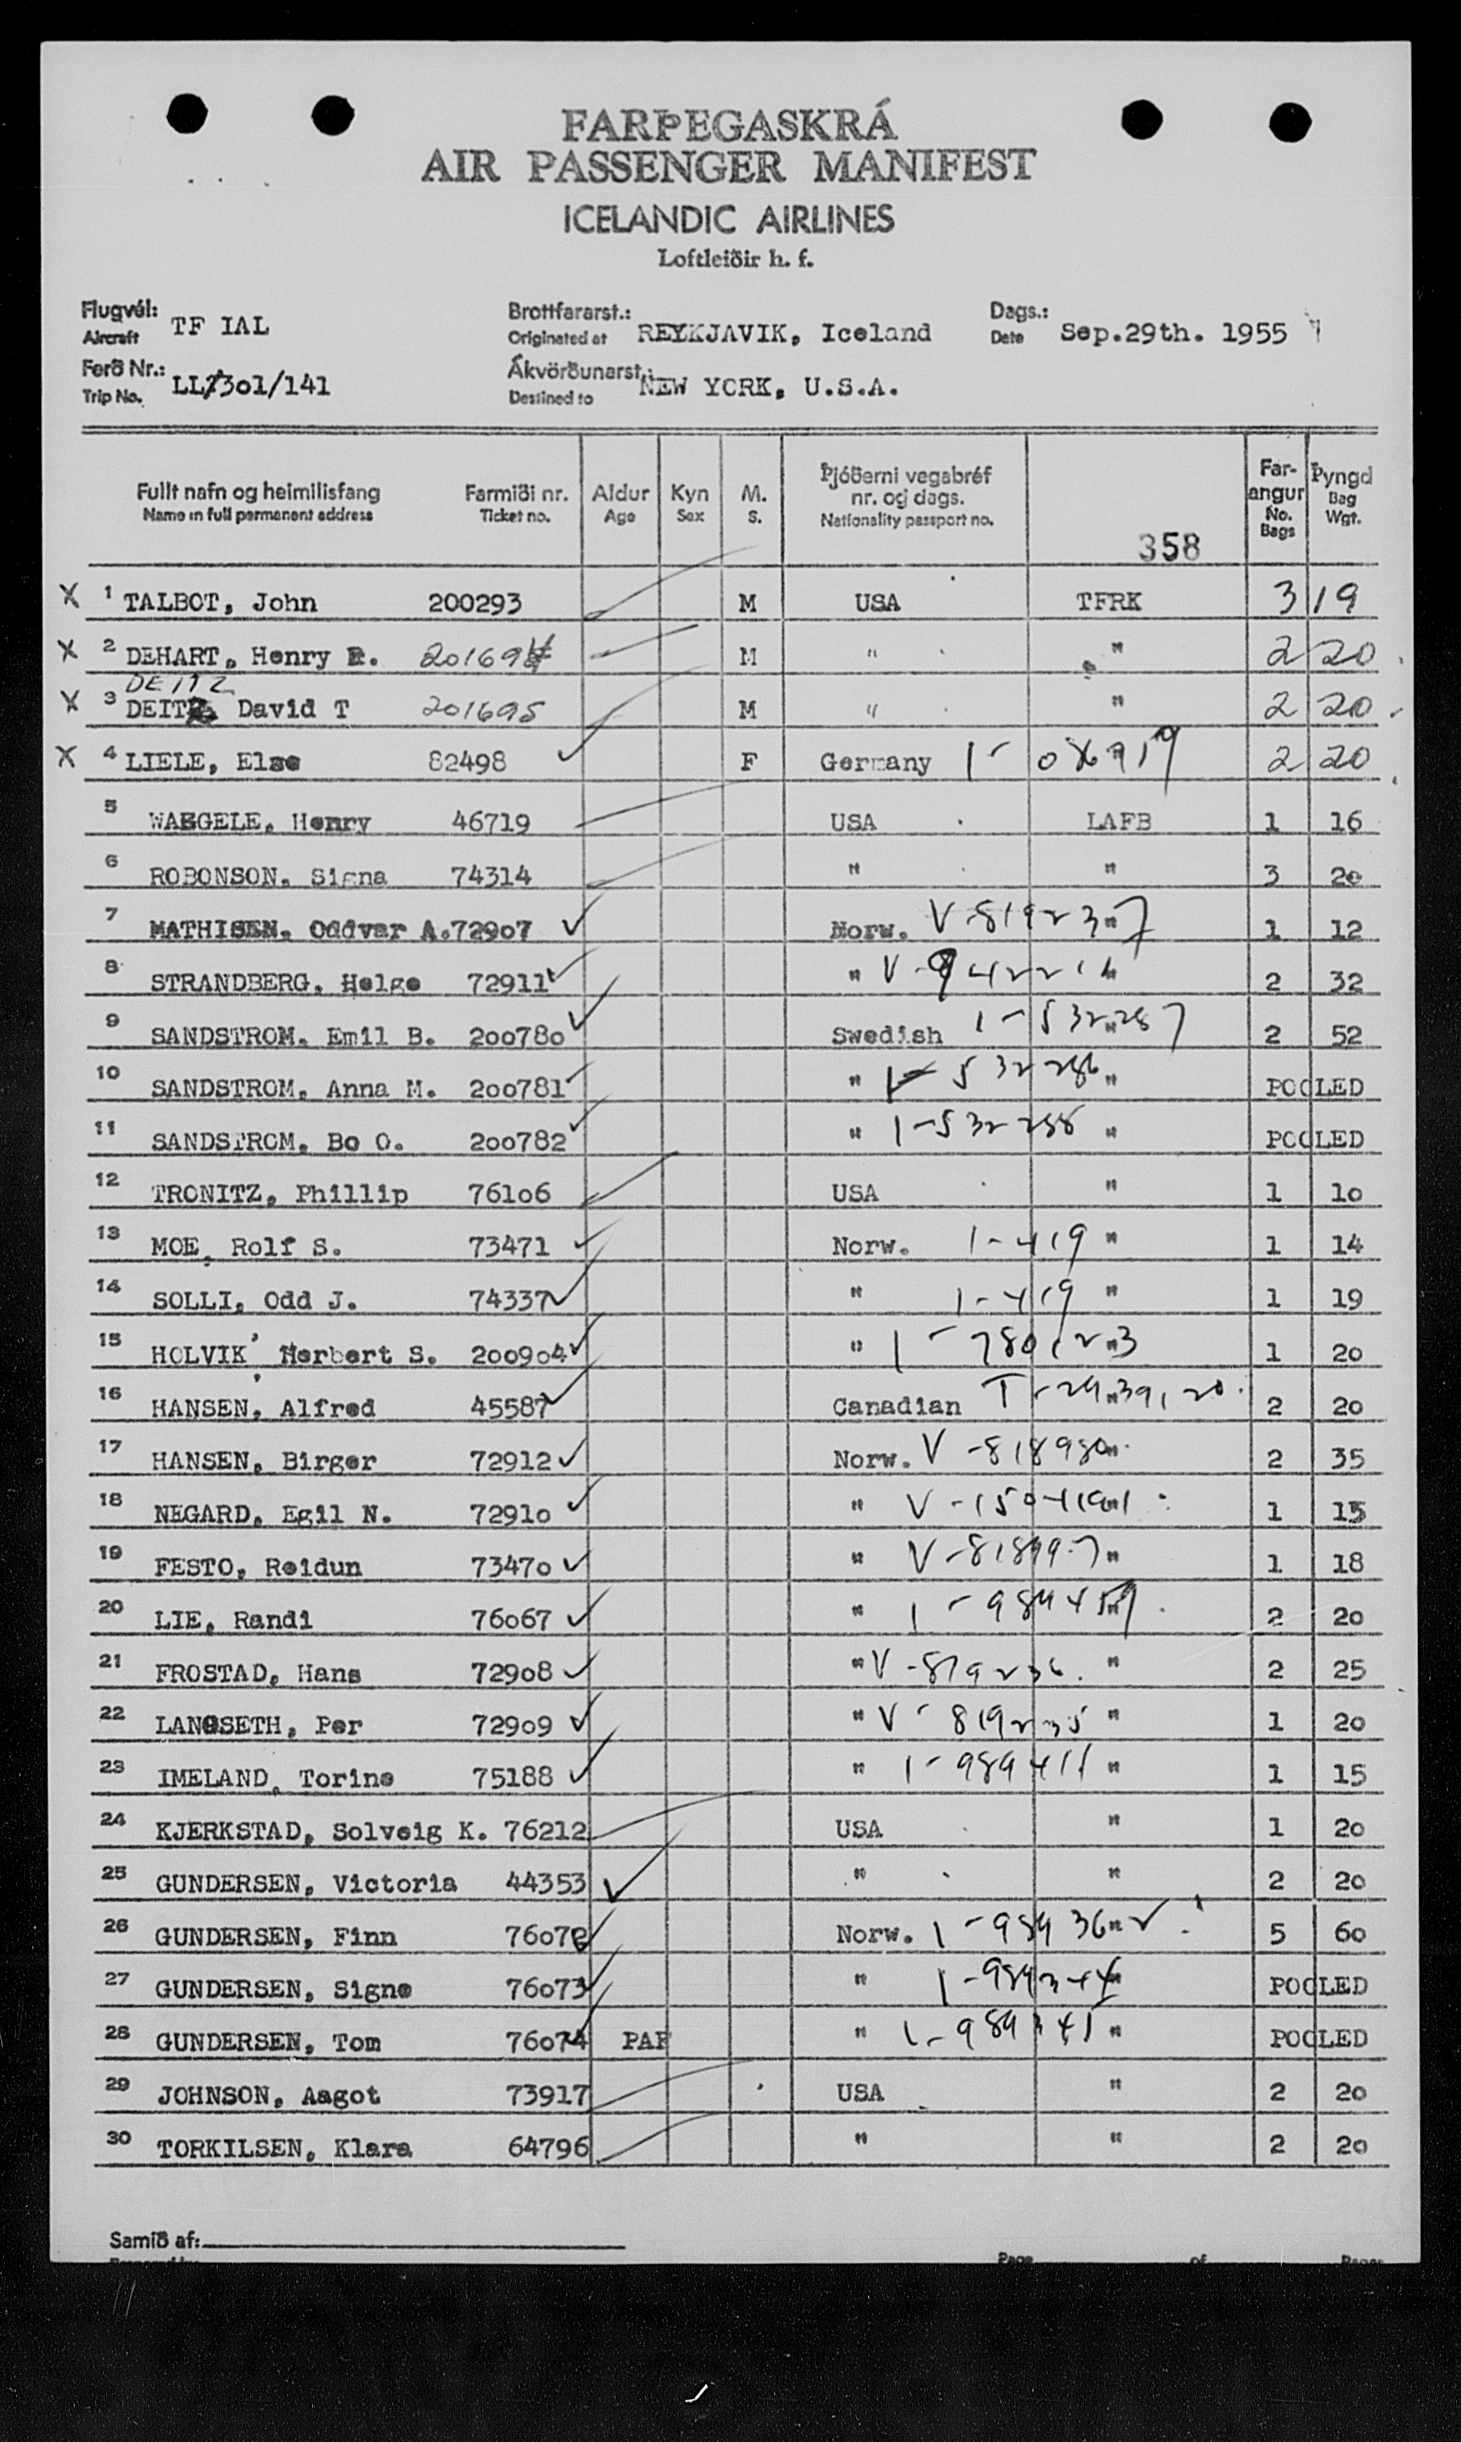 FARÞEGASKRÁ
AIR PASSENGER MANIFEST
ICELANDIC AIRLINES
Loftleiðir h. f.
Flugvél: Aircraft TF IAL Brottfararst.: Originated at REYKJAVIK, Iceland Dags.: Date Sep.29th. 1955
Ferð Nr.: Trip No. 301/141 Ákvörðunarst.: Destined to NEW YORK, U.S.A.
Fullt nafn og heimilisfang Farmiði nr. Aldur Kyn M. Þjóðerni vegabréf nr. og dags. Farangur Þyngd
Name in full permanent address Ticket no. Age Sex S. Nationality passport no. No. Bags Bag Wgt.
358
X 1 TALBOT, John 200293 M USA TFRK 3 19
X 2 DEHART, Henry R. M " " 2 20
DEITZ
X 3 David T 201695 M " " 2 20
X 4 LIELE, Else 82498 F Germany 2 20
5 WAEGELE, Henry 46719 USA LAFB 1 16
6 ROBONSON, Signa 74314 " " 3 20
7 MATHISEN, Oddvar A. 72907 Norw. V-819237 " 1 12
8 STRANDBERG, Helge 72911 " " 2 32
9 SANDSTROM, Emil B. 200780 Swedish 1-532287 " 2 52
10 SANDSTROM, Anna M. 200781 " 1-532286 " POOLED
11 SANDSTROM, Bo O. 200782 " 1-532288 " POOLED
12 TRONITZ, Phillip 76106 USA " 1 10
13 MOE, Rolf S. 73471 Norw. 1-419 " 1 14
14 SOLLI, Odd J. 74337 " 1-419 " 1 19
15 HOLVIK, Herbert S. 200904 " " 1 20
16 HANSEN, Alfred 45587 Canadian " 2 20
17 HANSEN, Birger 72912 Norw. V-818980 " 2 35
18 NEGARD, Egil N. 72910 " " 1 15
19 FESTO, Reidun 73470 " " 1 18
20 LIE, Randi 76067 " " 2 20
21 FROSTAD, Hans 72908 " V-819236 " 2 25
22 LANGSETH, Per 72909 " V-819235 " 1 20
23 IMELAND, Torine 75188 " 1-989411 " 1 15
24 KJERKSTAD, Solveig K. 76212 USA " 1 20
25 GUNDERSEN, Victoria 44353 " " 2 20
26 GUNDERSEN, Finn 76072 Norw. " 5 60
27 GUNDERSEN, Signe 76073 " " POOLED
28 GUNDERSEN, Tom 76074 " " POOLED
29 JOHNSON, Aagot 73917 USA " 2 20
30 TORKILSEN, Klara 64796 " " 2 20
Samið af:
Page of Pages